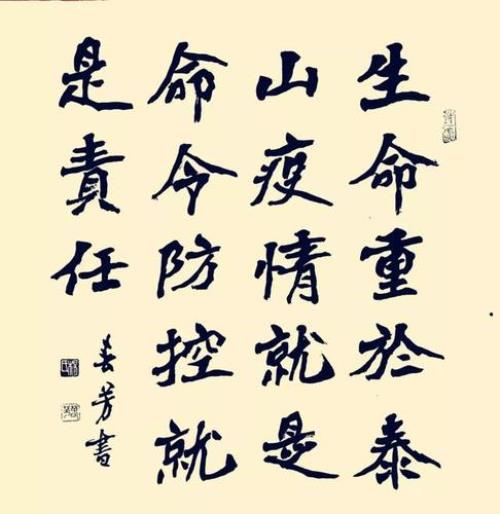 生命重於泰
山疫情就是
命令防控就
是責任
春芳書